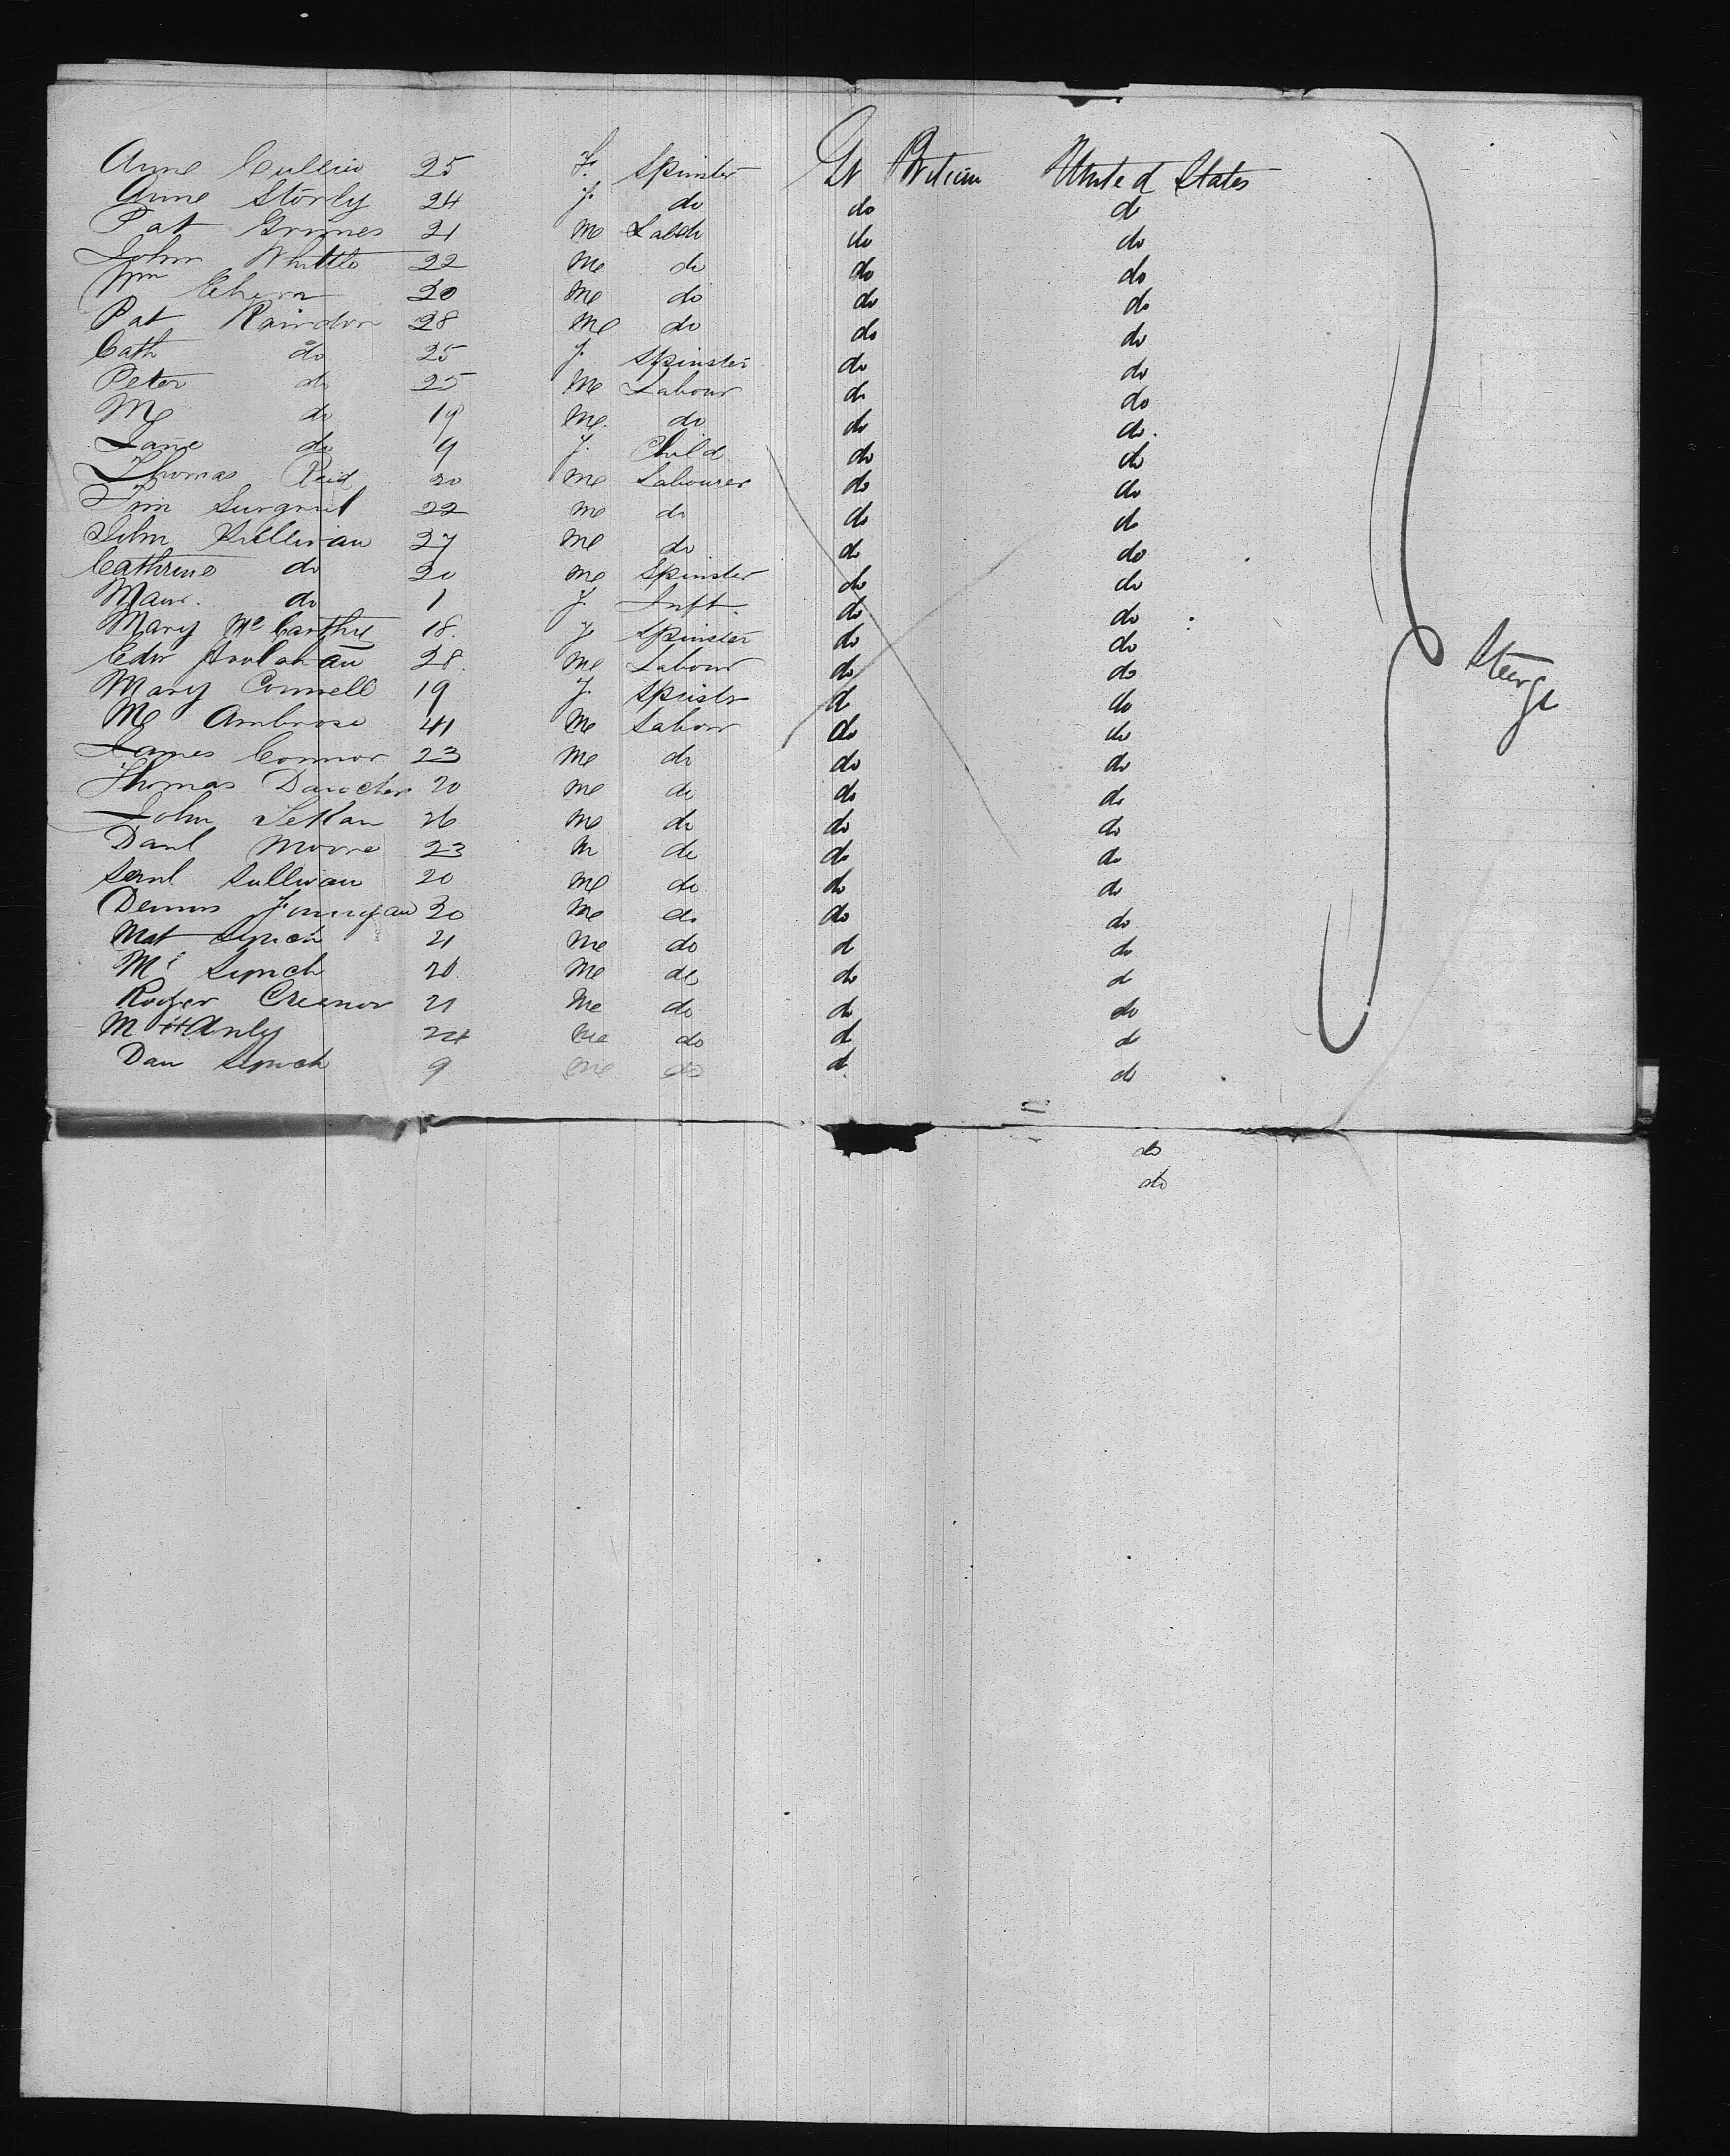 Anne Cullen 25 F. Spinster Gt Britain United States
Anne Storly 24 f. do do do
Pat Grimes 21 M Labdr do do
John Whittle 22 M do do do
Wm Ehern 20 M do do do
Pat Rairdon 28 M do do do
Cath do 25 f. Spinster do do
Peter do 25 M Labour do do
M do 19 M do do do
Jane do 9 f. Child do do
Thomas Reid 20 M Labourer do do
Tim 22 M do do do
John Sullivan 27 M do do do
Cathrine do 20 M Spinster do do
Maur. do 1 f. Inft. do do
Mary McCarthy 18. f. Spinster do do
Edw 28. M Labour do do
Mary Connell 19 f. Spinstr do do
M Ambrose 41 M Labour do do
Steerge
James Connor 23 M do do do
Thomas 20 M do do do
John 26 M do do do
Danl Moore 23 M do do do
Sullivan 20 M do do do
Dennis 20 M do do do
Mat Lynch 21 M do do do
M Lynch 20. M do do do
Roger 21 M do do do
M 24 M do do do
Dan Lynch 9 M do do do
do
do